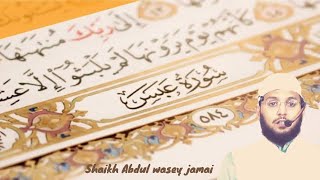 إِلَىٰ رَبِّكَ مُنتَهَىٰهَا
كَأَنَّهُمْ يَوْمَ يَرَوْنَهَا لَمْ يَلْبَثُوٓا۟ إِلَّا
سُورَةُ عَبَسَ
٥٨٤
Shaikh Abdul wasey jamai